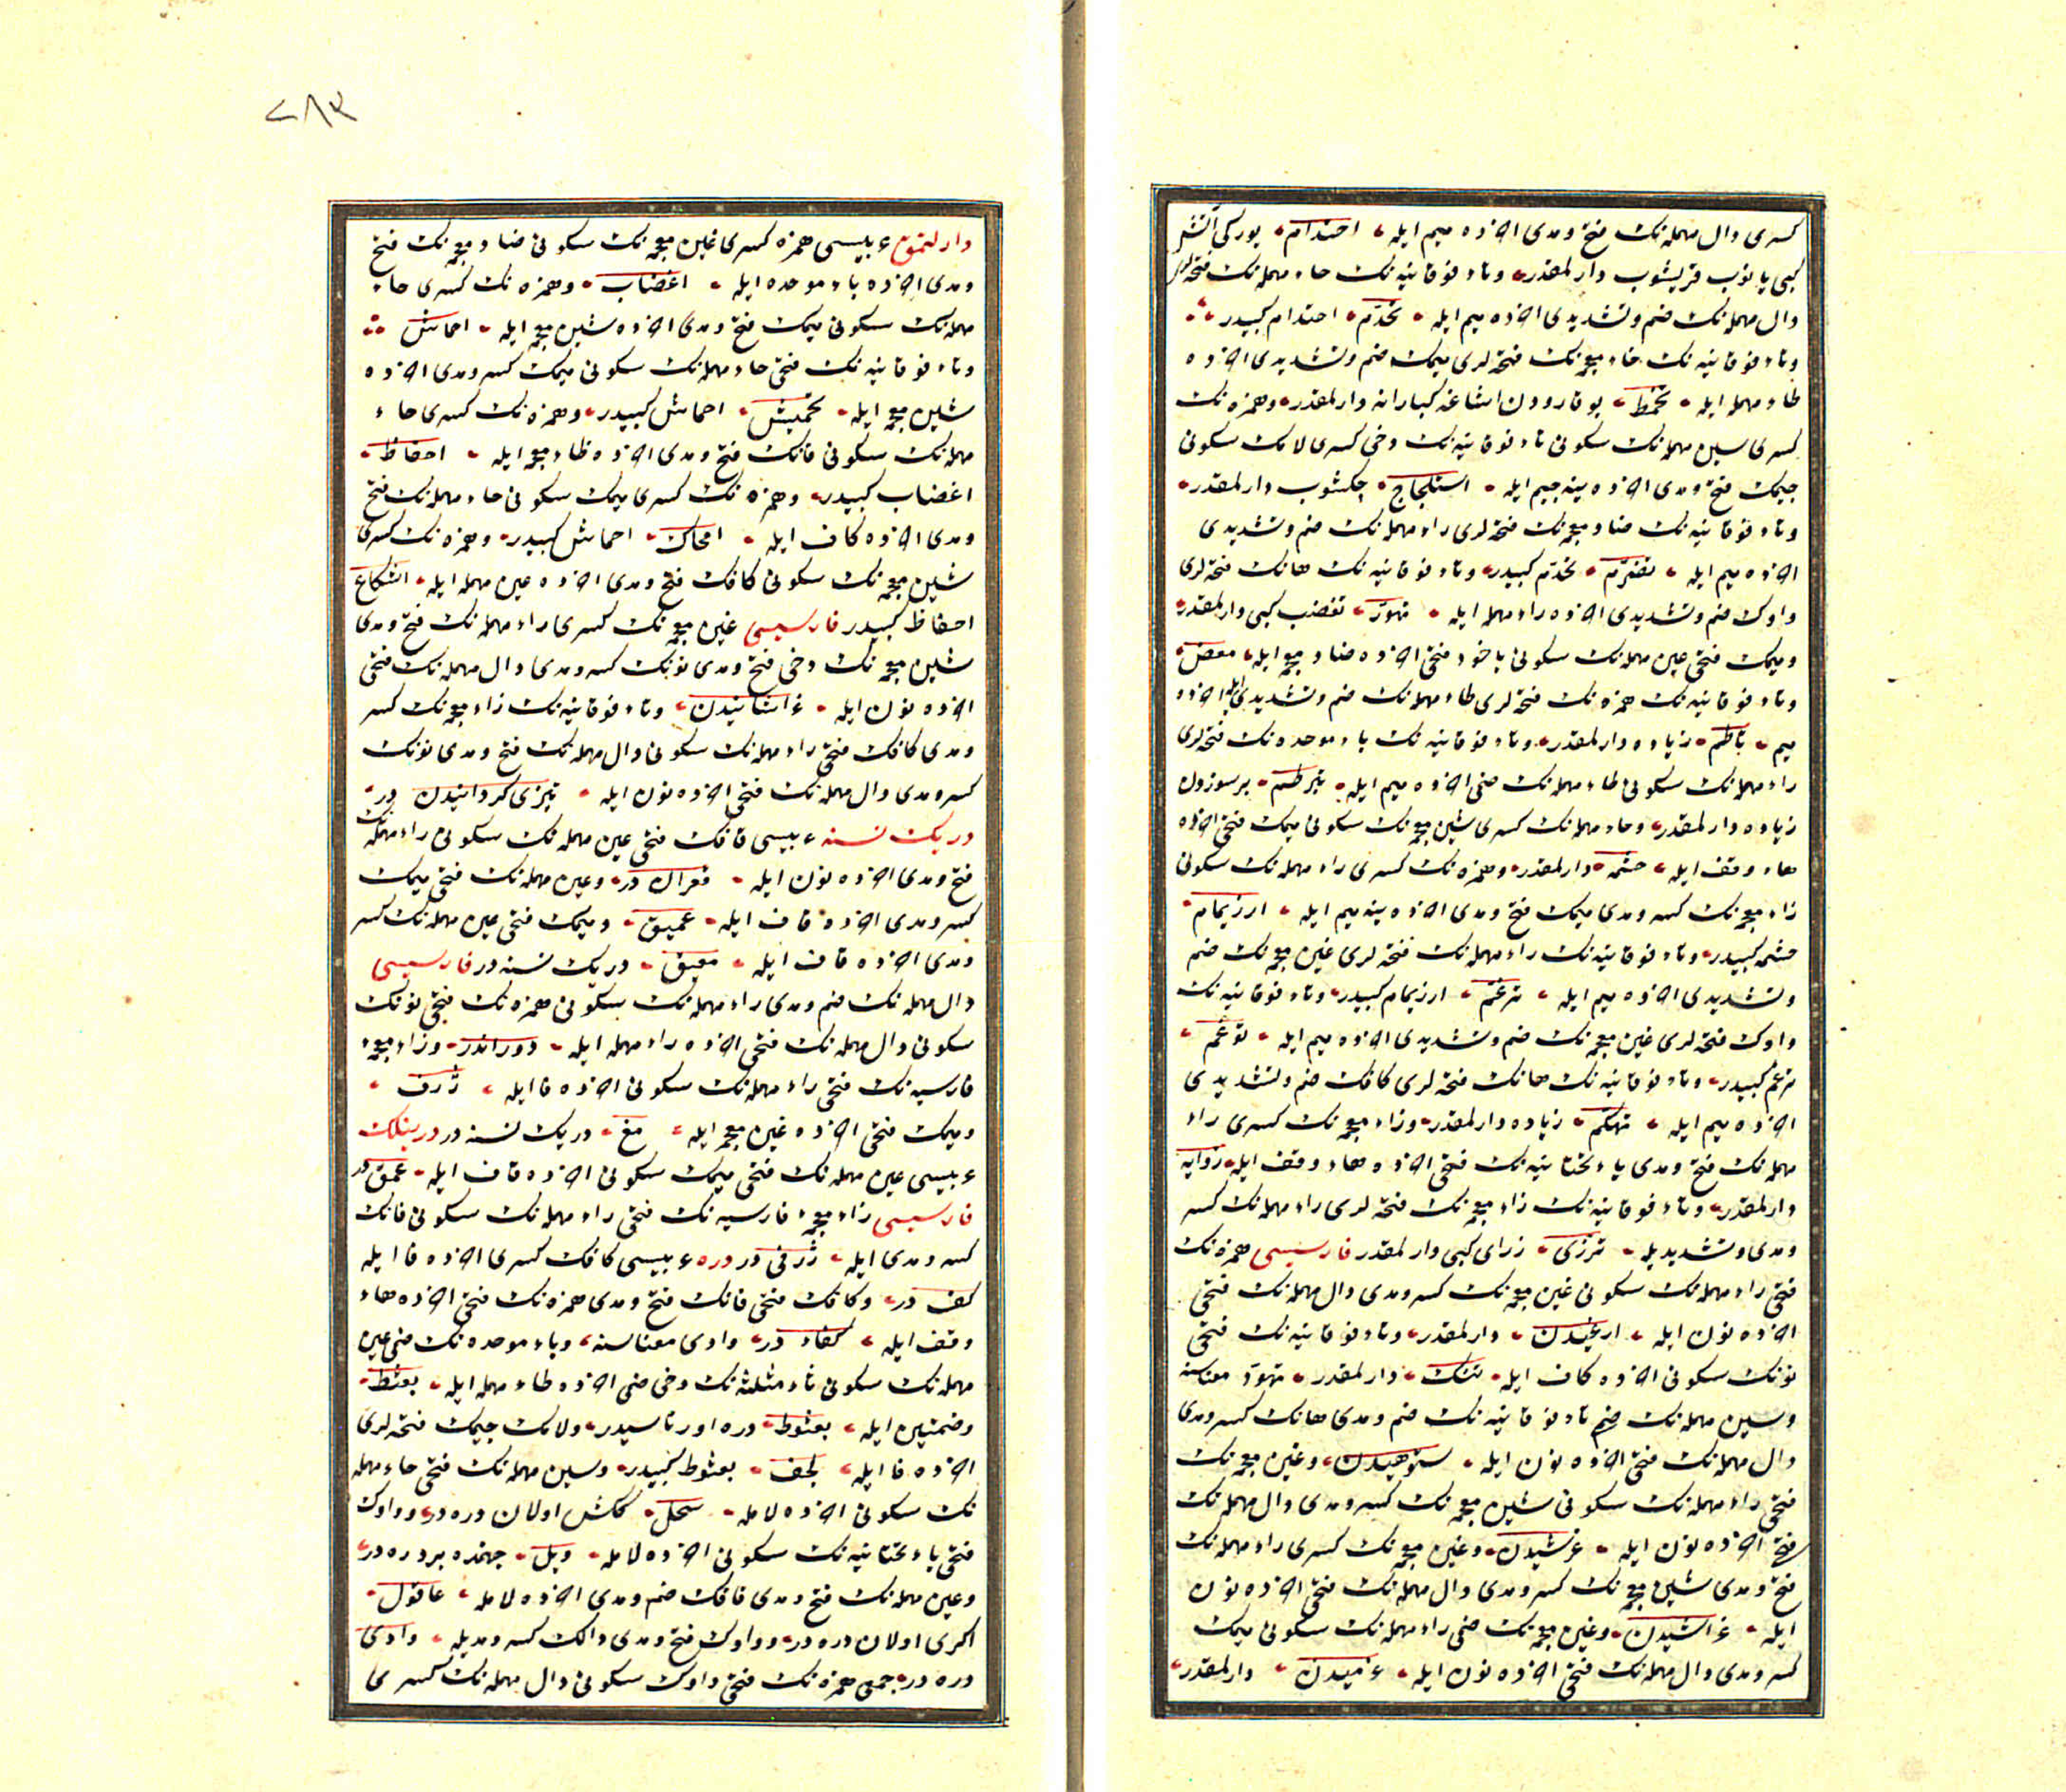 كسرى دال مهمله نك فتح و مدى اخرده ميم ايله احتدام يورك آتش
كبى يانوب قزيشوب دارلمقدر وتاء فوقانيه نك حاء مهمله نك فتحه لرى
دال مهمله نك ضم وتشديدى اخرده ميم ايله تحدّم احتدام كبيدر
وتاء فوقانيه نك خاء معجمه نك فتحه لرى ميمك ضم وتشديدى اخرده
طاء مهمله ايله تخمّط يوقارودن اشاغه كبارانه دارلمقدر وهمزه نك
كسرى سين مهمله نك سكونى تاء فوقانيه نك دخى كسرى لامك سكونى
جيمك فتح ومدى اخرده ينه جيم ايله استلجاج چكشوب دارلمقدر
وتاء فوقانيه نك ضاد معجمه نك فتحه لرى راء مهمله نك ضم وتشديدى
اخرده ميم ايله تضرّم تحدّم كبيدر وتاء فوقانيه نك هانك فتحه لرى
واوك ضم وتشديدى اخرده راء مهمله ايله تهوّر تغضب كبى دارلمقدر
وميمك فتحى عين مهمله نك سكونى ياخود فتحى اخرده ضاد معجمه ايله معض
وتاء فوقانيه نك همزه نك فتحه لرى طاء مهمله نك ضم وتشديدى ايله اخرده
ميم تأطّم زياده دارلمقدر وتاء فوقانيه نك باء موحده نك فتحه لرى
راء مهمله نك سكونى طاء مهمله نك ضمى اخرده ميم ايله تبرطم برسوزدن
زياده دارلمقدر وحاء مهمله نك كسرى شين معجمه نك سكونى ميمك فتحى اخرده
هاء وقف ايله حشمه دارلمقدر وهمزه نك كسرى راء مهمله نك سكونى
زاء معجمه نك كسر ومدى ميمك فتح ومدى اخرده ينه ميم ايله ارزيمام
حشمه كبيدر وتاء فوقانيه نك راء مهمله نك فتحه لرى غين معجمه نك ضم
وتشديدى اخرده ميم ايله ترغّم ارزيمام كبيدر وتاء فوقانيه نك
واوك فتحه لرى غين معجمه نك ضم وتشديدى اخرده ميم ايله توغّم
ترغم كبيدر وتاء فوقانيه نك هانك فتحه لرى كافك ضم وتشديدى
اخرده ميم ايله تهكّم زياده دارلمقدر وزاء معجمه نك كسرى راء
مهمله نك فتح ومدى ياء تحتانيه نك فتحى اخرده هاء وقف ايله زرايه
دارلمقدر وتاء فوقانيه نك زاء معجمه نك فتحه لرى راء مهمله نك كسر
ومدى وتشديديله تزرّى زراى كبى دارلمقدر فارسيسى همزه نك
فتحى راء مهمله نك سكونى غين معجمه نك كسر ومدى دال مهمله نك فتحى
اخرده نون ايله ارغيدن دارلمقدر وتاء فوقانيه نك فتحى
نونك سكونى اخرده كاف ايله تنك دارلمقدر تهوّر معناسنه
وسين مهمله نك ضم تاء فوقانيه نك ضم ومدى هانك كسر ومدى
دال مهمله نك فتحى اخرده نون ايله ستوهيدن وغين معجمه نك
فتحى راء مهمله نك سكونى شين معجمه نك كسر ومدى دال مهمله نك
فتح اخرده نون ايله غرشيدن وغين معجمه نك كسرى راء مهمله نك
فتح ومدى شين معجمه نك كسر ومدى دال مهمله نك فتحى اخرده نون
ايله غراشيدن وغين معجمه نك ضمى راء مهمله نك سكونى ميمك
كسر ومدى دال مهمله نك فتحى اخرده نون ايله غرميدن دارلمقدر
٢٨٣
دارلتمق عربيسى همزه كسرى غين معجمه نك سكونى ضاد معجمه نك فتح
ومدى اخرده باء موحده ايله اغضاب وهمزه نك كسرى حاء
مهمله نك سكونى ميمك فتح ومدى اخرده شين معجمه ايله احماش
وتاء فوقانيه نك فتحى حاء مهمله نك سكونى ميمك كسر ومدى اخرده
شين معجمه ايله تحميش احماش كبيدر وهمزه نك كسرى حاء
مهمله نك سكونى فانك فتح ومدى اخرده ظاء معجمه ايله احفاظ
اغضاب كبيدر وهمزه نك كسرى ميمك سكونى حاء مهمله نك فتح
ومدى اخرده كاف ايله امحاك احماش كبيدر وهمزه نك كسرى
شين معجمه نك سكونى كافك فتح ومدى اخرده عين مهمله ايله اشكاع
احفاظ كبيدر فارسيسى غين معجمه نك كسرى راء مهمله نك فتح ومدى
شين معجمه نك دخى فتح ومدى نونك كسر ومدى دال مهمله نك فتحى
اخرده نون ايله غراشانيدن وتاء فوقانيه نك زاء معجمه نك كسر
ومدى كافك فتحى راء مهمله نك سكونى دال مهمله نك فتح ومدى نونك
كسر ومدى دال مهمله نك فتحى اخرده نون ايله تيزى كردانيدن در
درين نسنه عربيسى قافك فتحى عين مهمله نك سكونى راء مهمله نك
فتح ومدى اخرده نون ايله قعران در وعين مهمله نك فتحى ميمك
كسر ومدى اخرده قاف ايله عميق وميمك فتحى عين مهمله نك كسر
ومدى اخرده قاف ايله معيق درين نسنه در فارسيسى
دال مهمله نك ضم ومدى راء مهمله نك سكونى همزه نك فتحى نونك
سكونى دال مهمله نك فتحى اخرده راء مهمله ايله دوراندر وزاء معجمه
فارسيه نك فتحى راء مهمله نك سكونى اخرده فا ايله ژرف
وميمك فتحى اخرده غين معجمه ايله مغ درين نسنه در درينلك
عربيسى عين مهمله نك فتحى ميمك سكونى اخرده قاف ايله عمق در
فارسيسى زاء معجمه فارسيه نك فتحى راء مهمله نك سكونى فانك
كسر ومدى ايله ژرفى در دره عربيسى كافك كسرى اخرده فا ايله
كف در وكافك فتحى فانك فتح ومدى همزه نك فتحى اخرده هاء
وقف ايله كفاءه در وادى معناسنه وباء موحده نك ضمى عين
مهمله نك سكونى ثاء مثلثه نك دخى ضمى اخرده طاء مهمله ايله بعثط
وضمتين ايله بعثوط دره اورتاسيدر ولامك جيمك فتحه لرى
اخرده فا ايله لجف بعثوط كبيدر وسين مهمله نك فتحى حاء مهمله
نك سكونى اخرده لامله سحل كنش اولان دره در وواوك
فتحى ياء تحتانيه نك سكونى اخرده لامله ويل جهنمده بر دره در
وعين مهمله نك فتح ومدى قافك ضم ومدى اخرده لامله عاقول
اكرى اولان دره در وواوك فتح ومدى دالك كسر ومديله وادى
دره در جمعى همزه نك فتحى واوك سكونى دال مهمله نك كسرى